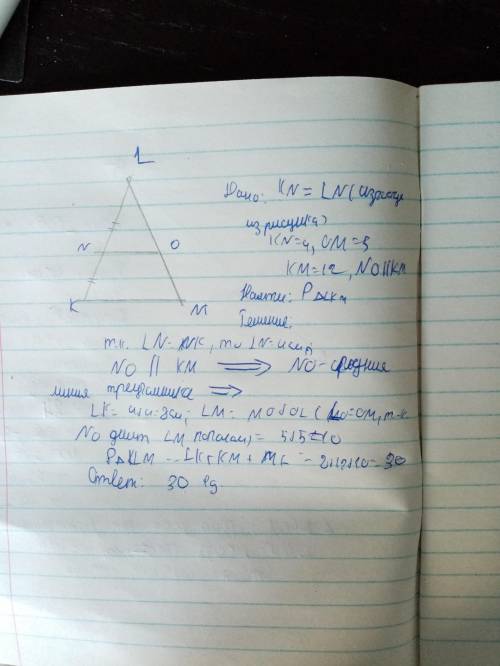 L
Дано: KN = LN (
из рисунка)
KN=4, OM=5
KM=12, NO||KM
N O
K M
Найти: P△LKM
Решение:
т.к. LN= NK, то LN=4см
NO || KM ⟹ NO-средняя
линия треугольника ⟹
LK= 4+4=8см; LM= MO+OL (LO=OM, т.к
NO делит LM пополам)= 5+5=10
P△KLM = LK+KM+ML = 8+12+10=30
Ответ: 30